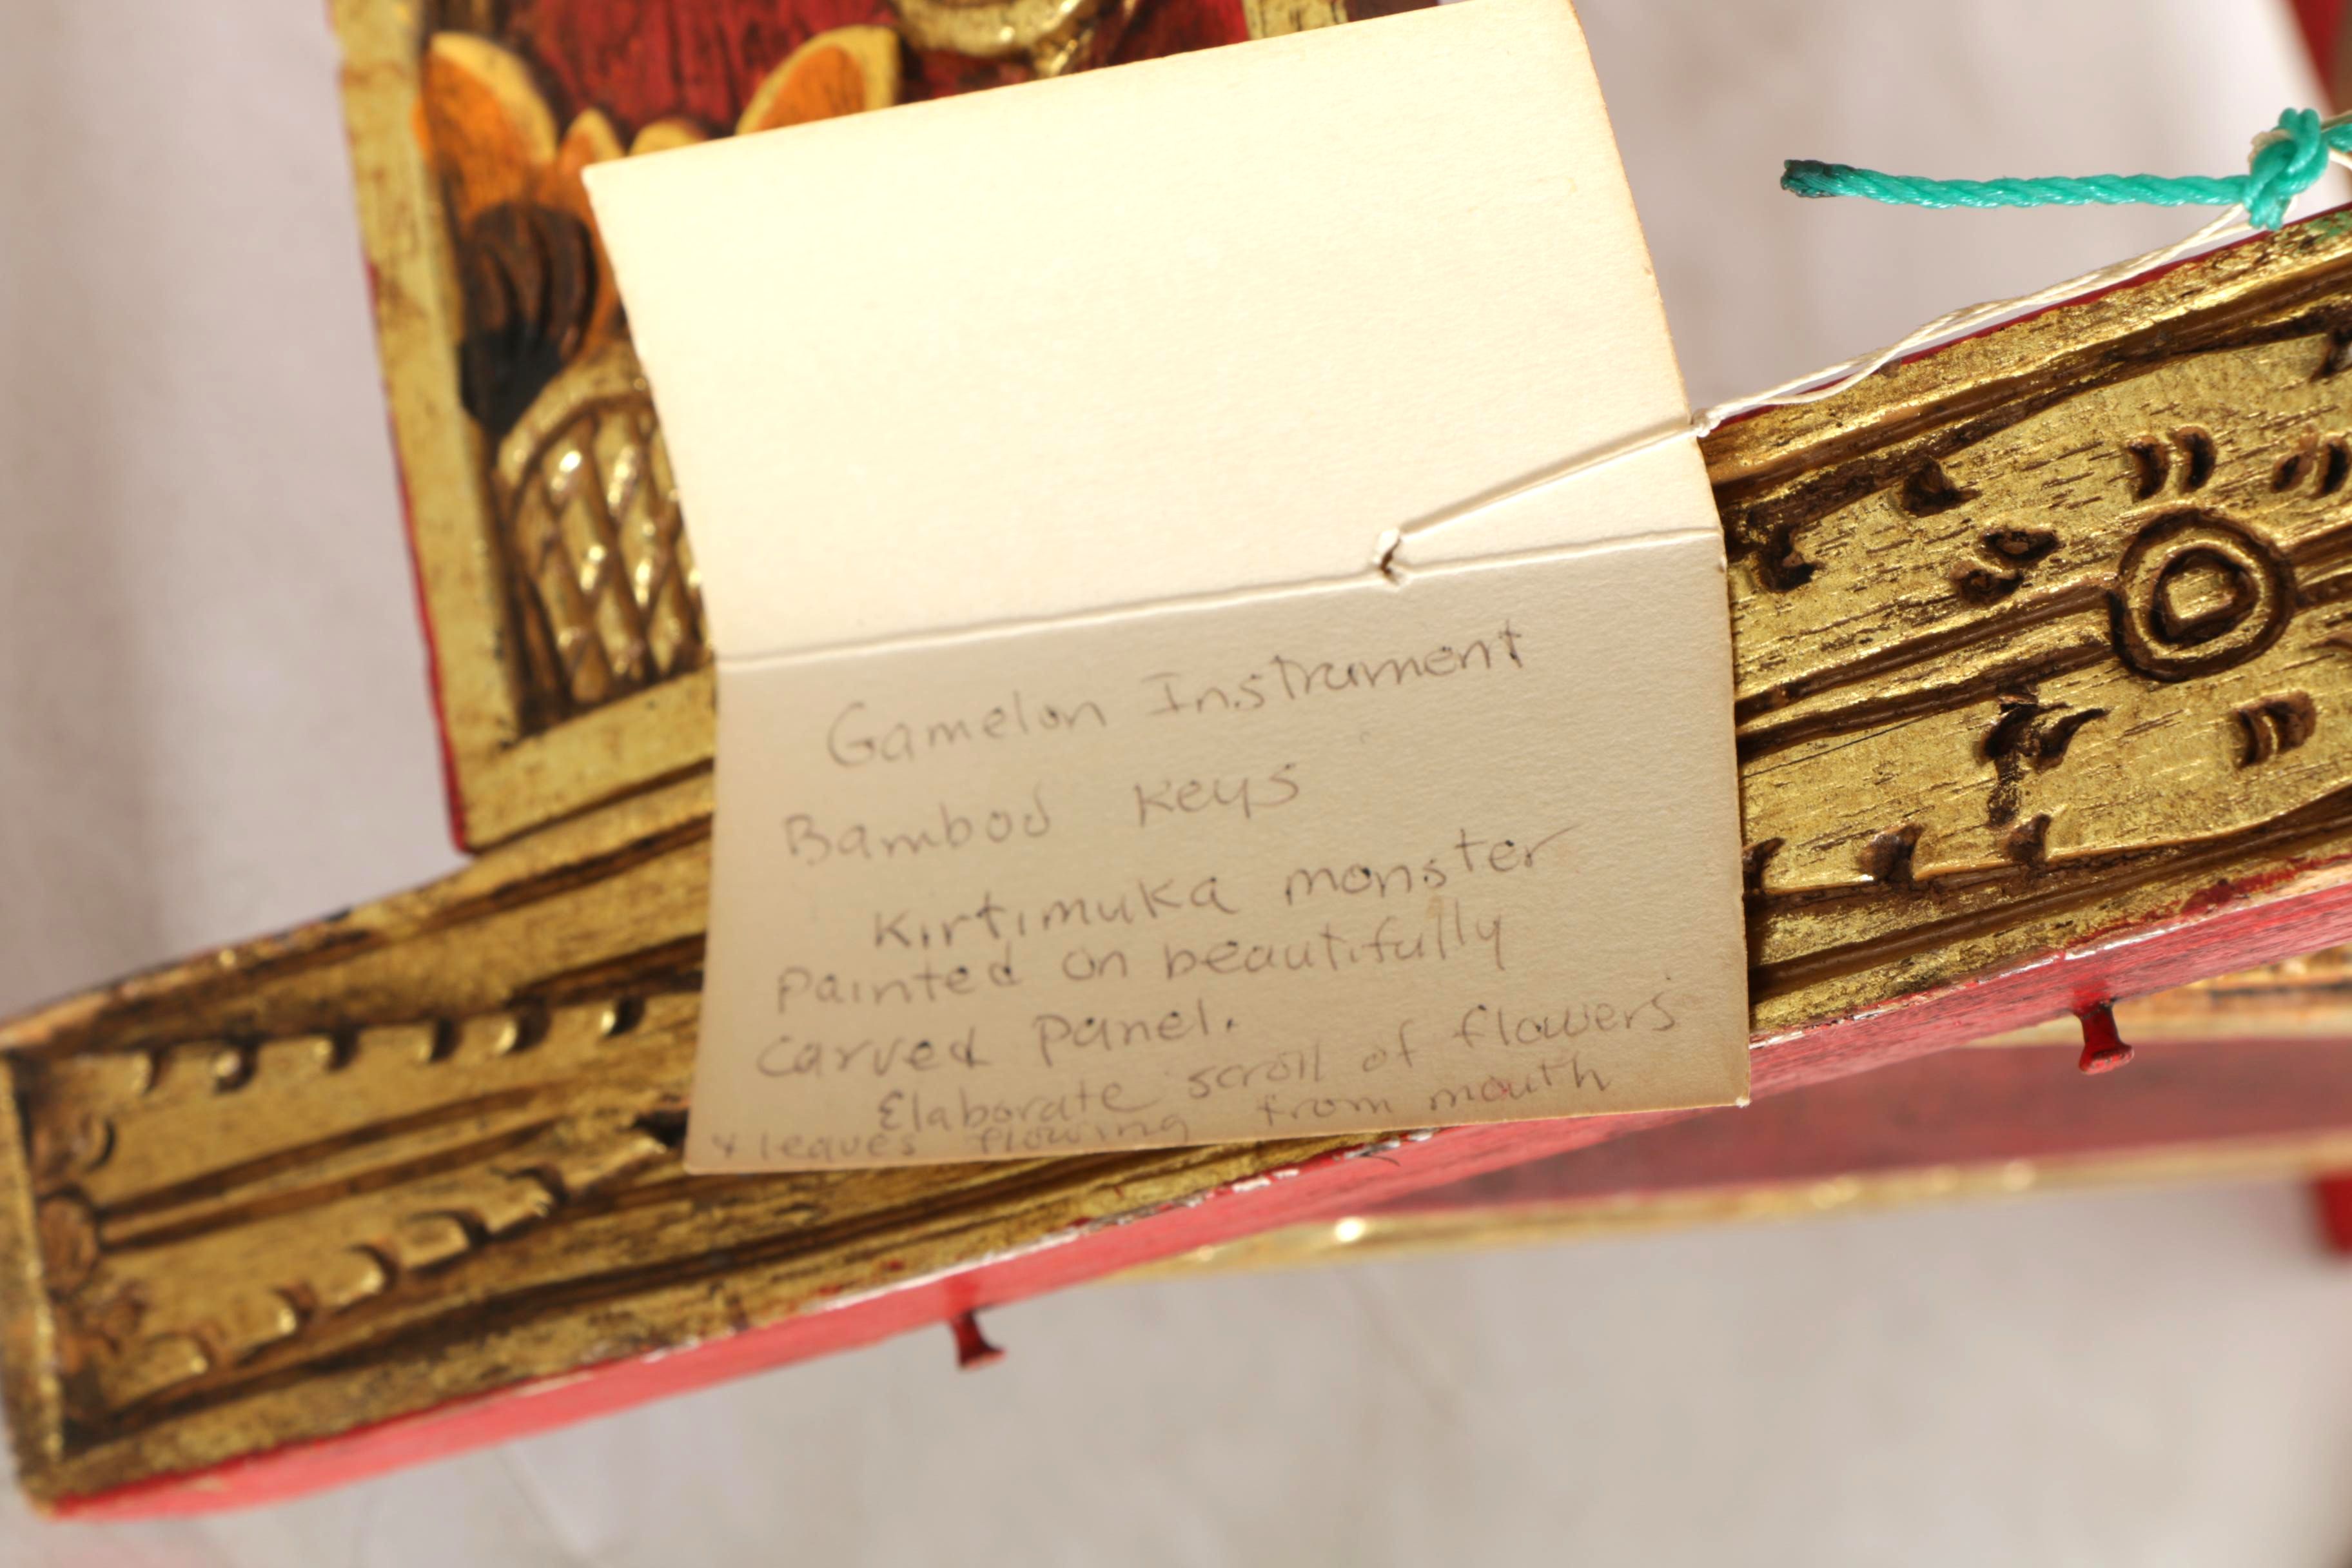 Gamelon Instrument
Bamboo Keys
Kirtimuka monster
Painted on beautifully
Carved Panel.
Elaborate scroll of flowers
& leaves flowing from mouth